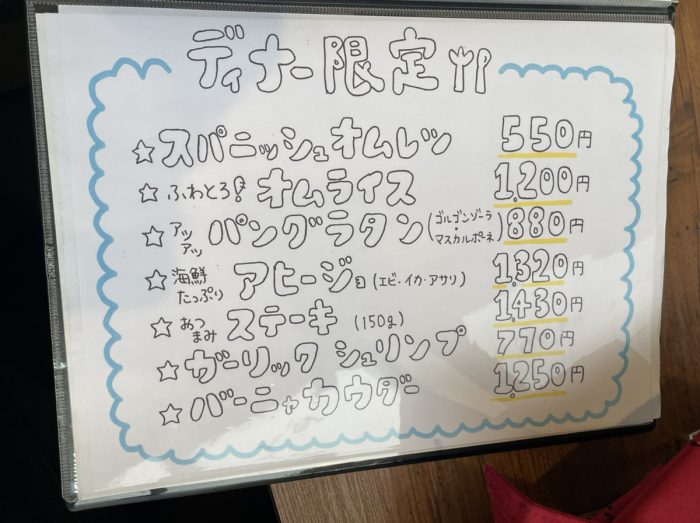 ディナー限定
☆スパニッシュオムレツ 550円
☆ふわとろ!オムライス 1,200円
☆アツアツ パングラタン(ゴルゴンゾーラ・マスカルポーネ) 880円
☆海鮮たっぷり アヒージョ(エビ・イカ・アサリ) 1,320円
☆おつまみ ステーキ (150g) 1,430円
☆ガーリックシュリンプ 770円
☆バーニャカウダー 1,250円